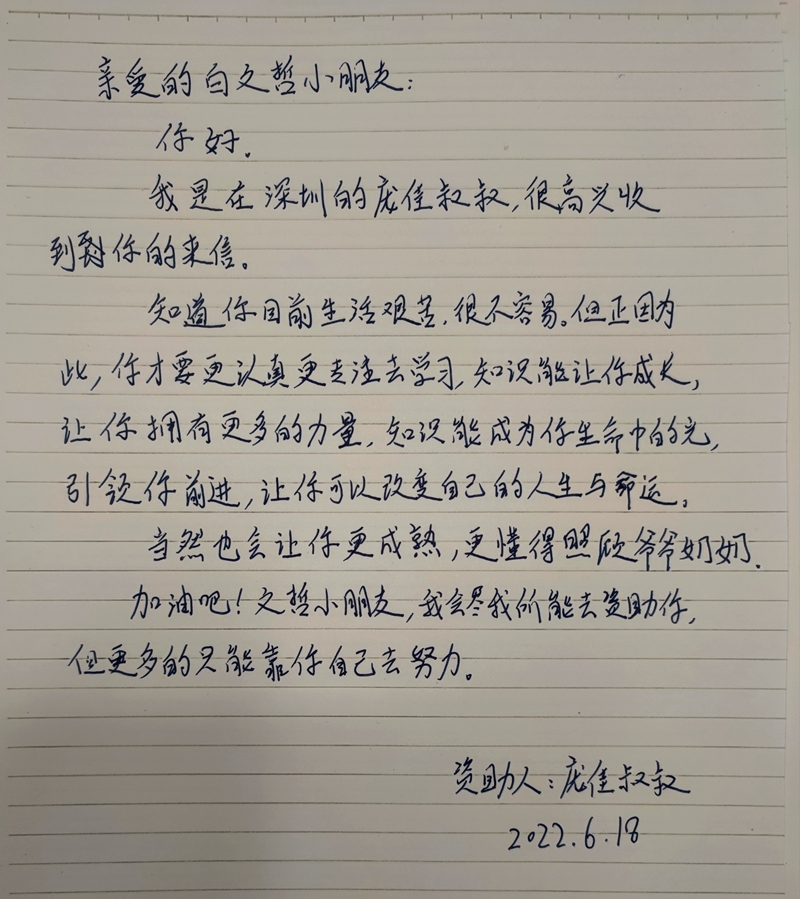 亲爱的白文哲小朋友：
你好.
我是在深圳的庞佳叔叔,很高兴收
到你的来信。
知道你目前生活艰苦,很不容易。但正因为
此,你才要更认真更专注去学习,知识能让你成长,
让你拥有更多的力量,知识能成为你生命中的光,
引领你前进,让你可以改变自己的人生与命运。
当然也会让你更成熟,更懂得照顾爷爷奶奶.
加油吧！文哲小朋友,我会尽我所能去资助你,
但更多的只能靠你自己去努力。
资助人：庞佳叔叔
2022.6.18